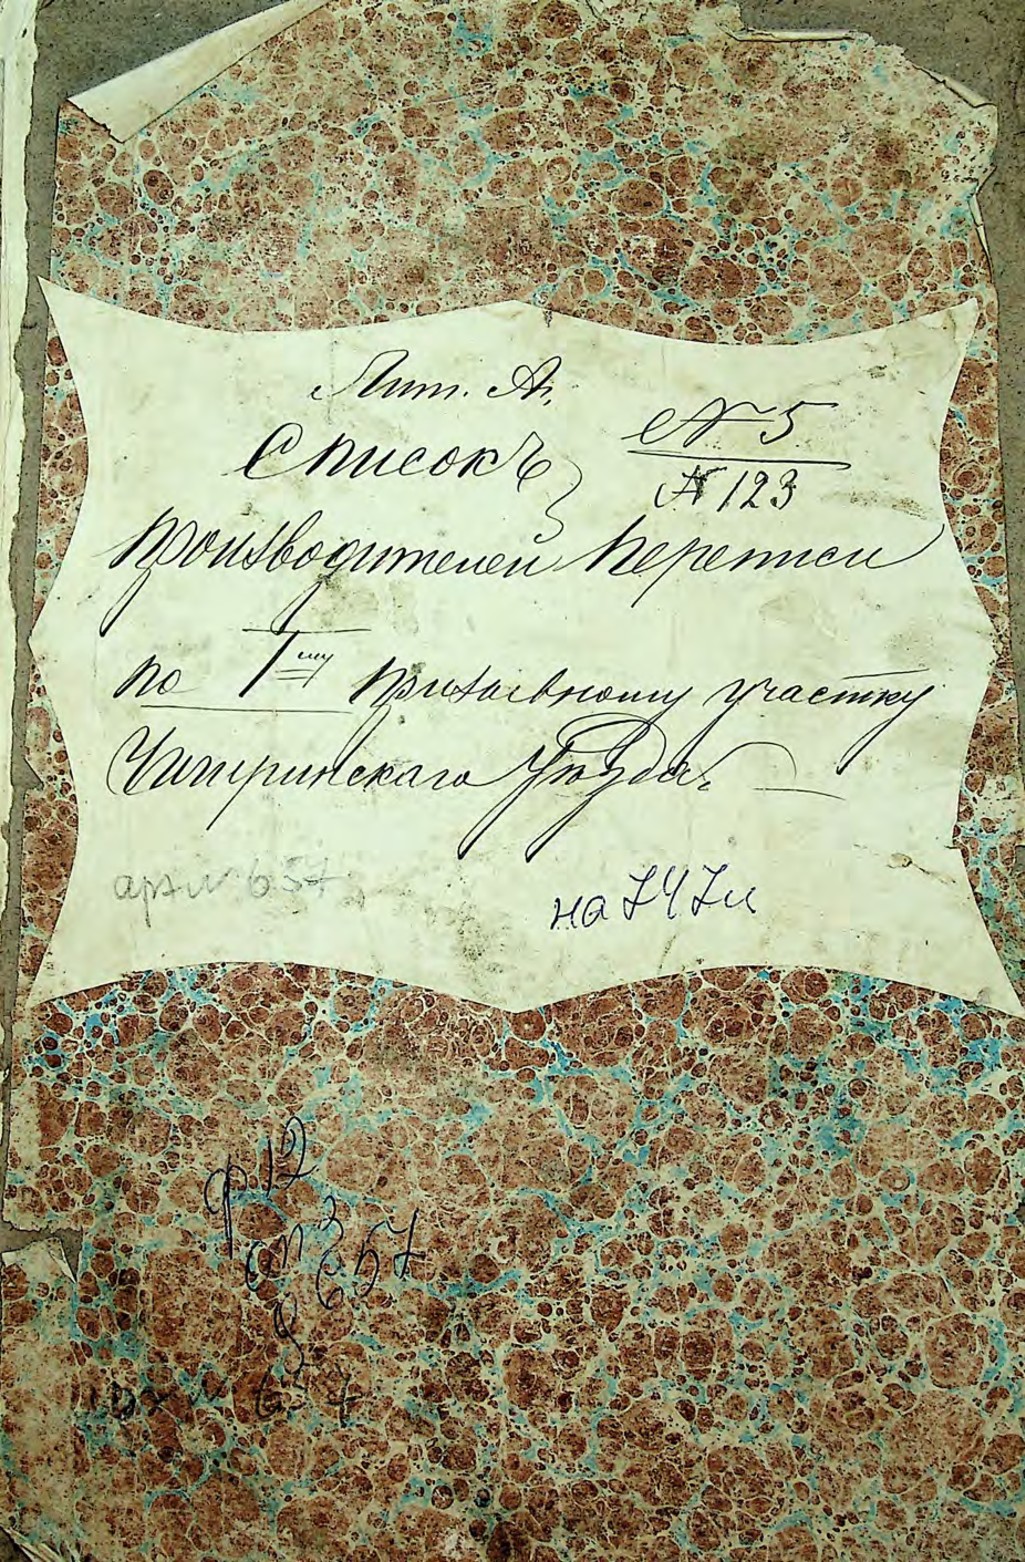 Лит. А.
Списокъ
№ 5
№ 123
производителей переписи
по I му призывному участку
Чигиринскаго Уѣзда.
арх № 657
на 747 л
ф 12
оп 3
д 657
№ 657